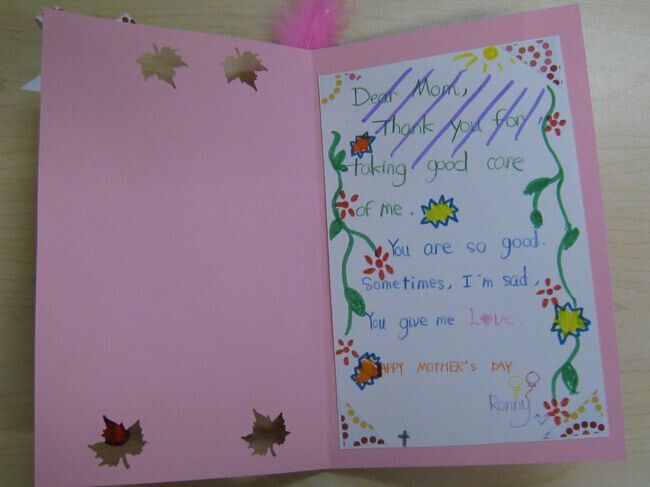 Dear Mom,
Thank you for
taking good care
of me.
You are so good.
Sometimes, I'm sad,
You give me Love.
HAPPY MOTHER'S DAY
Ronny